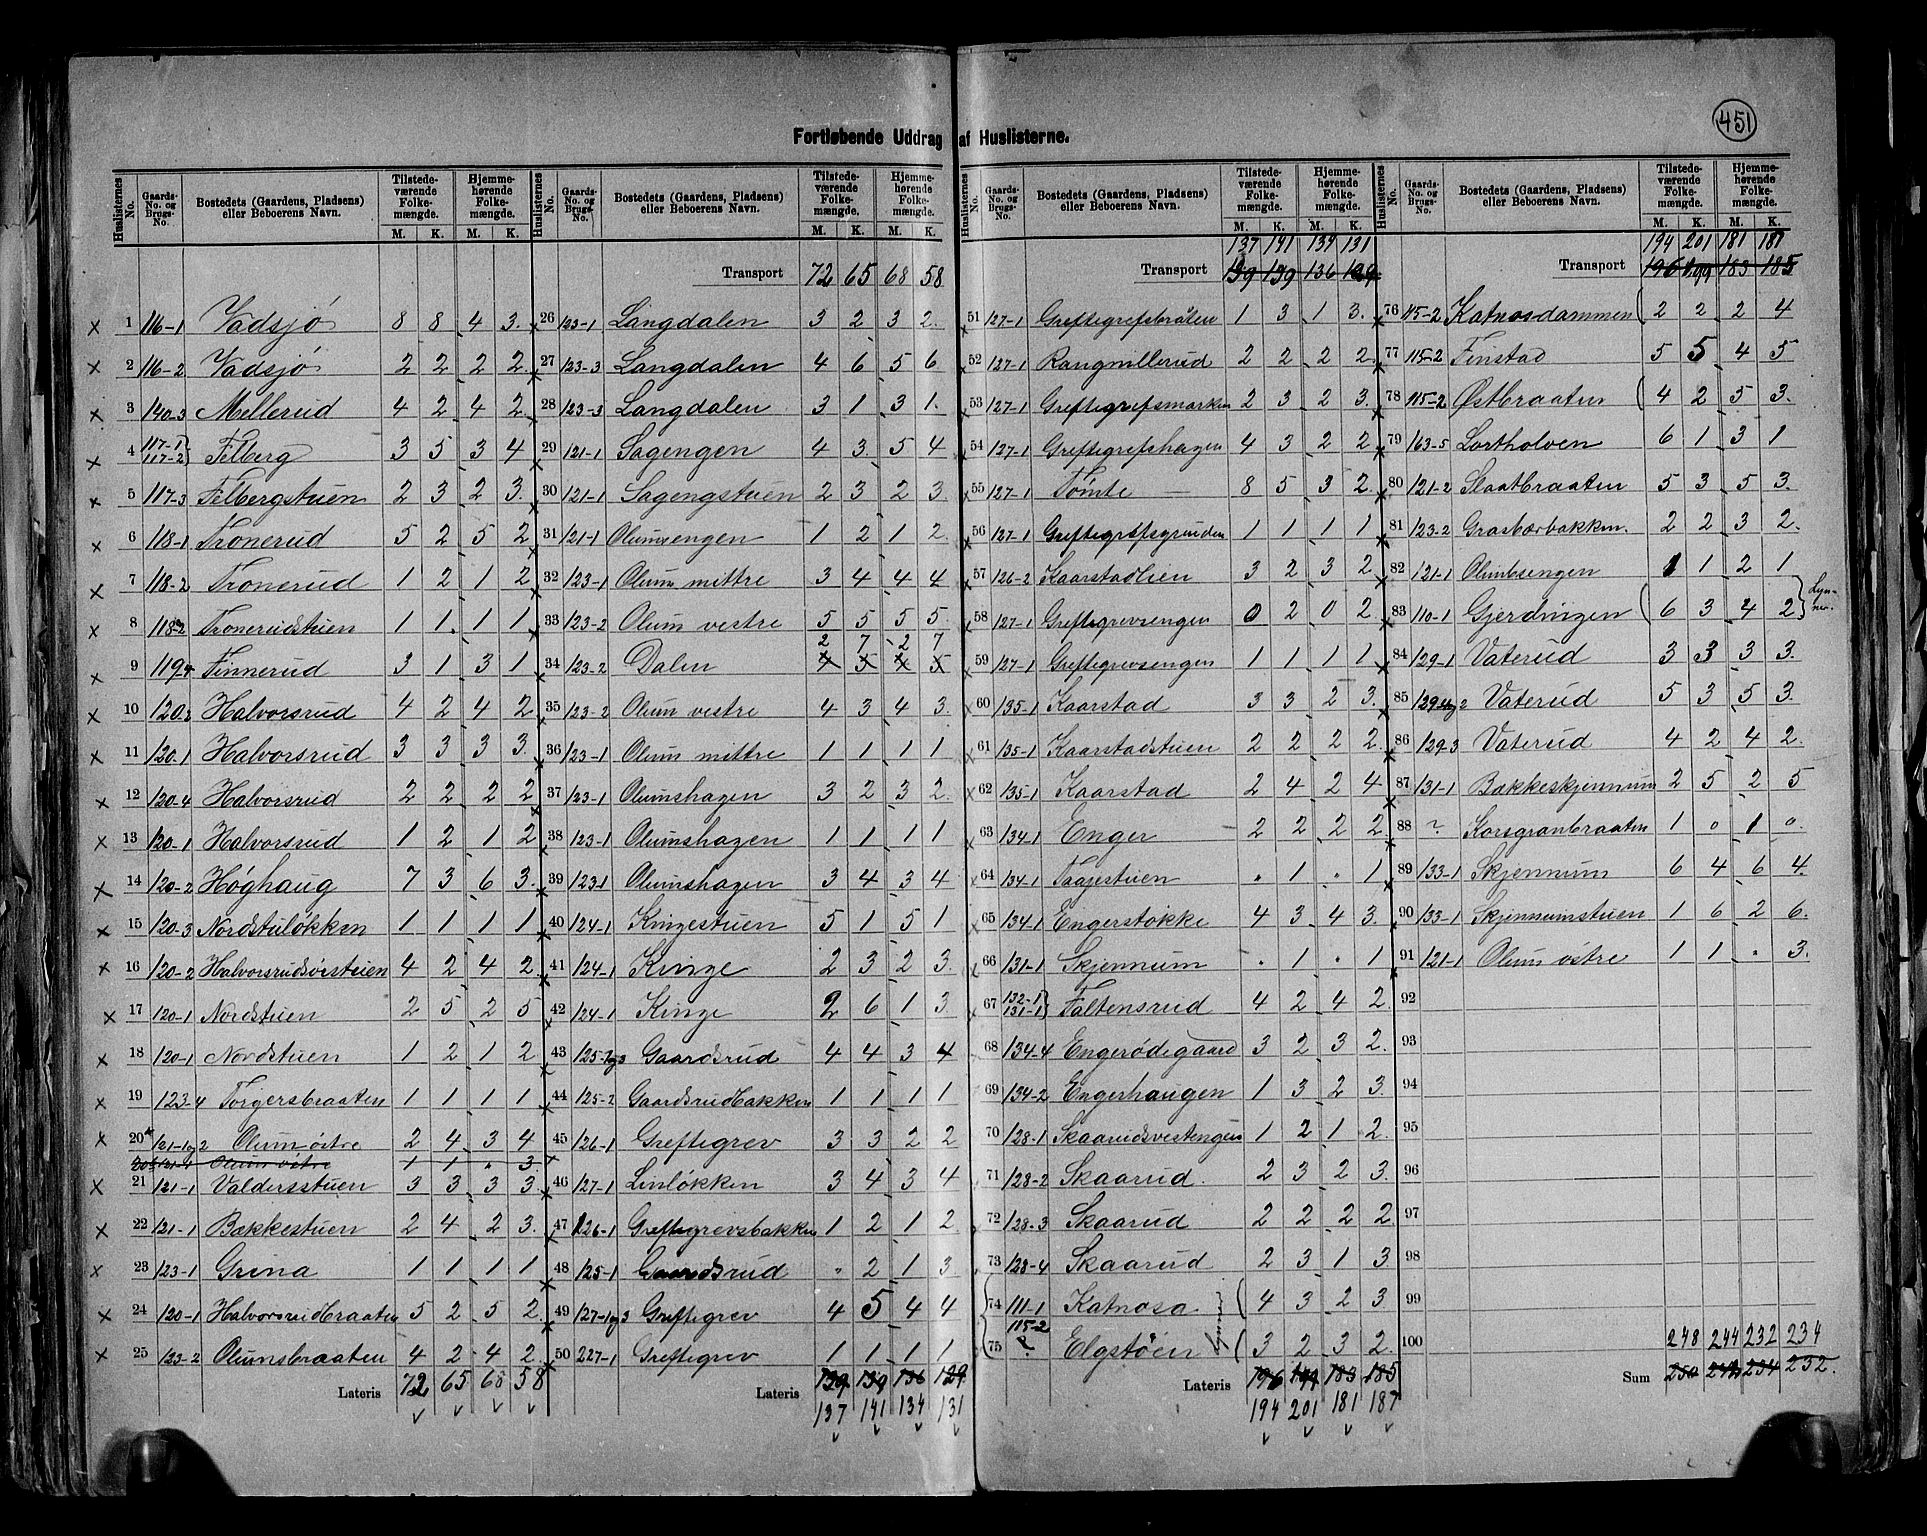 451
Fortløbende Uddrag af Huslisterne.
Huslisternes No. | Gaards-No. og Brugs-No. | Bostedets (Gaardens, Pladsens) eller Beboerens Navn. | Tilstede-værende Folke-mængde. M. K. | Hjemme-hørende Folke-mængde. M. K.
1 116-1 Vadsjø 8 8 4 3.
2 116-2 Vadsjø 2 2 2 2.
3 140-3 Mellerud 4 2 4 2.
4 117-1 117-2 Felberg 3 5 3 4
5 117-3 Felbergstuen 2 3 2 3.
6 118-1 Tronerud 5 2 5 2
7 118-2 Tronerud 1 2 1 2
8 118-2 Tronerudstuen 1 1 1 1
9 119- Finnerud 3 1 3 1
10 120-2 Halvorsrud 4 2 4 2
11 120-1 Halvorsrud 3 3 3 3.
12 120-4 Halvorsrud 2 2 2 2
13 120-1 Halvorsrud 1 2 1 2
14 120-2 Høghaug 7 3 6 3.
15 120-3 Nordstuløkken 1 1 1 1
16 120-2 Halvorsrudsvestuen 4 2 4 2.
17 120-1 Nordstuen 2 5 2 5
18 120-1 Nordstuen 1 2 1 2
19 123-4 Torgersbraaten 1 1 1 1
20a 121-1og2 Olum østre 2 4 3 4
20b 121-1 Olum østre 1 1 " 3.
21 121-1 Valdersstuen 3 3 3 3
22 121-1 Bækkestuen 2 4 2 3.
23 123-1 Grina 1 1 1 1
24 120-1 Halvorsrudbraaten 5 2 5 2.
25 123-2 Olumsbraaten 4 2 4 2
Lateris 72 65 68 58
Transport 72 65 68 58
26 123-1 Langdalen 3 2 3 2.
27 123-3 Langdalen 4 6 5 6
28 123-3 Langdalen 3 1 3 1.
29 121-1 Sagengen 4 3. 5 4
30 121-1 Sagengstuen 2 3 2 3
31 121-1 Olumsengen 1 2 1 2.
32 123-1 Olum mittre 3 4 4 4
33 123-2 Olum vestre 5 5 5 5.
2 7 2 7
34 123-2 Dalen 4 5 4 5
35 123-2 Olum vestre 4 3 4 3.
36 123-1 Olum mittre 1 1 1 1
37 123-1 Olumshagen 3 2 3 2.
38 123-1 Olumshagen 1 1 1 1
39 123-1 Olumshagen 3 4 3 4
40 124-1 Kingestuen 5 1 5 1
41 124-1 Kinge 2 3 2 3.
42 124-1 Kinge 2 6 1 3
43 125-1og3 Gaardsrud 4 4 3 4
44 125-2 Gaardsrudbakken 1 1 1 1
45 126-1 Greftegrev 3 3 2 2
46 127-1 Linløkken 3 4 3 4
47 126-1 Greftegrevsbakken 1 2 1 2
48 125-1 Gaardsrud " 2 1 3
49 127-1og3 Greftegrev 4 5 4 4
50 227-1 Greftegrev 1 1 1 1
Lateris 139 139 136 129
137 141 134 131
137 141 134 131
Transport 139 139 136 129
51 127-1 Greftegrefsbråten 1 3 1 3.
52 127-1 Rangnillerud 2 2 2 2.
53 127-1 Greftegrefsmarken 2 3 2 3.
54 127-1 Greftegrefshagen 4 3 2 2
55 127-1 Tømte 8 5 3 2.
56 127-1 Greftegrefsgrinden 1 1 1 1
57 126-2 Kaarstadlien 3 2 3 2
58 127-1 Greftegrevsengen 0 2 0 2
59 127-1 Greftegrevsengen 1 1 1 1
60 135-1 Kaarstad 3 3 2 3.
61 135-1 Kaarstadstuen 2 2 2 2.
62 135-1 Kaarstad 2 4 2 4
63 134-1 Enger 2 2 2 2
64 134-1 Taajestuen " 1 " 1
65 134-1 Engerstøkke 4 3 4 3.
66 131-1 Skjennum " 1 " 1
67 132-1 131-1 Faltensrud 4 2 4 2.
68 134-4 Engerødegaard 3 2 3 2.
69 134-2 Engerhaugen 1 3 2 3.
70 128-1 Skaarudsvestengen 1 2 1 2.
71 128-2 Skaarud. 2 3 2 3.
72 128-3 Skaarud 2 2 2 2.
73 128-4 Skaarud 2 3 1 3
74 111-1 Katnosa 4 3 2 3
75 115-2 ? Elgstøen 3 2 3 2.
Lateris 196 199 183 185
194 201 181 187
194 201 181 187
Transport 196 199 183 185
76 115-2 Katnosdammen 2 2 2 4
77 115-2 Finstad 5 5 4 5
78 115-2 Østbraaten 4 2 5 3.
79 163-5 Lortholven 6 1 3 1
80 121-2 Slaatbraaten 5 3 5 3.
81 123-2 Grasbærbakken. 2 2 3 2.
82 121-1 Olumbsengen 1 1 2 1
83 110-1 Gjerdingen 6 3 4 2 Lyn-ner.
84 129-1 Vaterud 3 3 3 3.
85 129-4og2 Vaterud 5 3 5 3.
86 129-3 Vaterud 4 2 4 2.
87 131-1 Bækkeskjennum 2 5 2 5
88 ? Korsgranbraaten 1 0 1 0.
89 133-1 Skjennum 6 4 6 4.
90 133-1 Skjennumstuen 1 6 2 6.
91 121-1 Olum østre 1 1 " 3.
92
93
94
95
96
97
98
99
100
248 244 232 234
Sum 250 242 234 232.